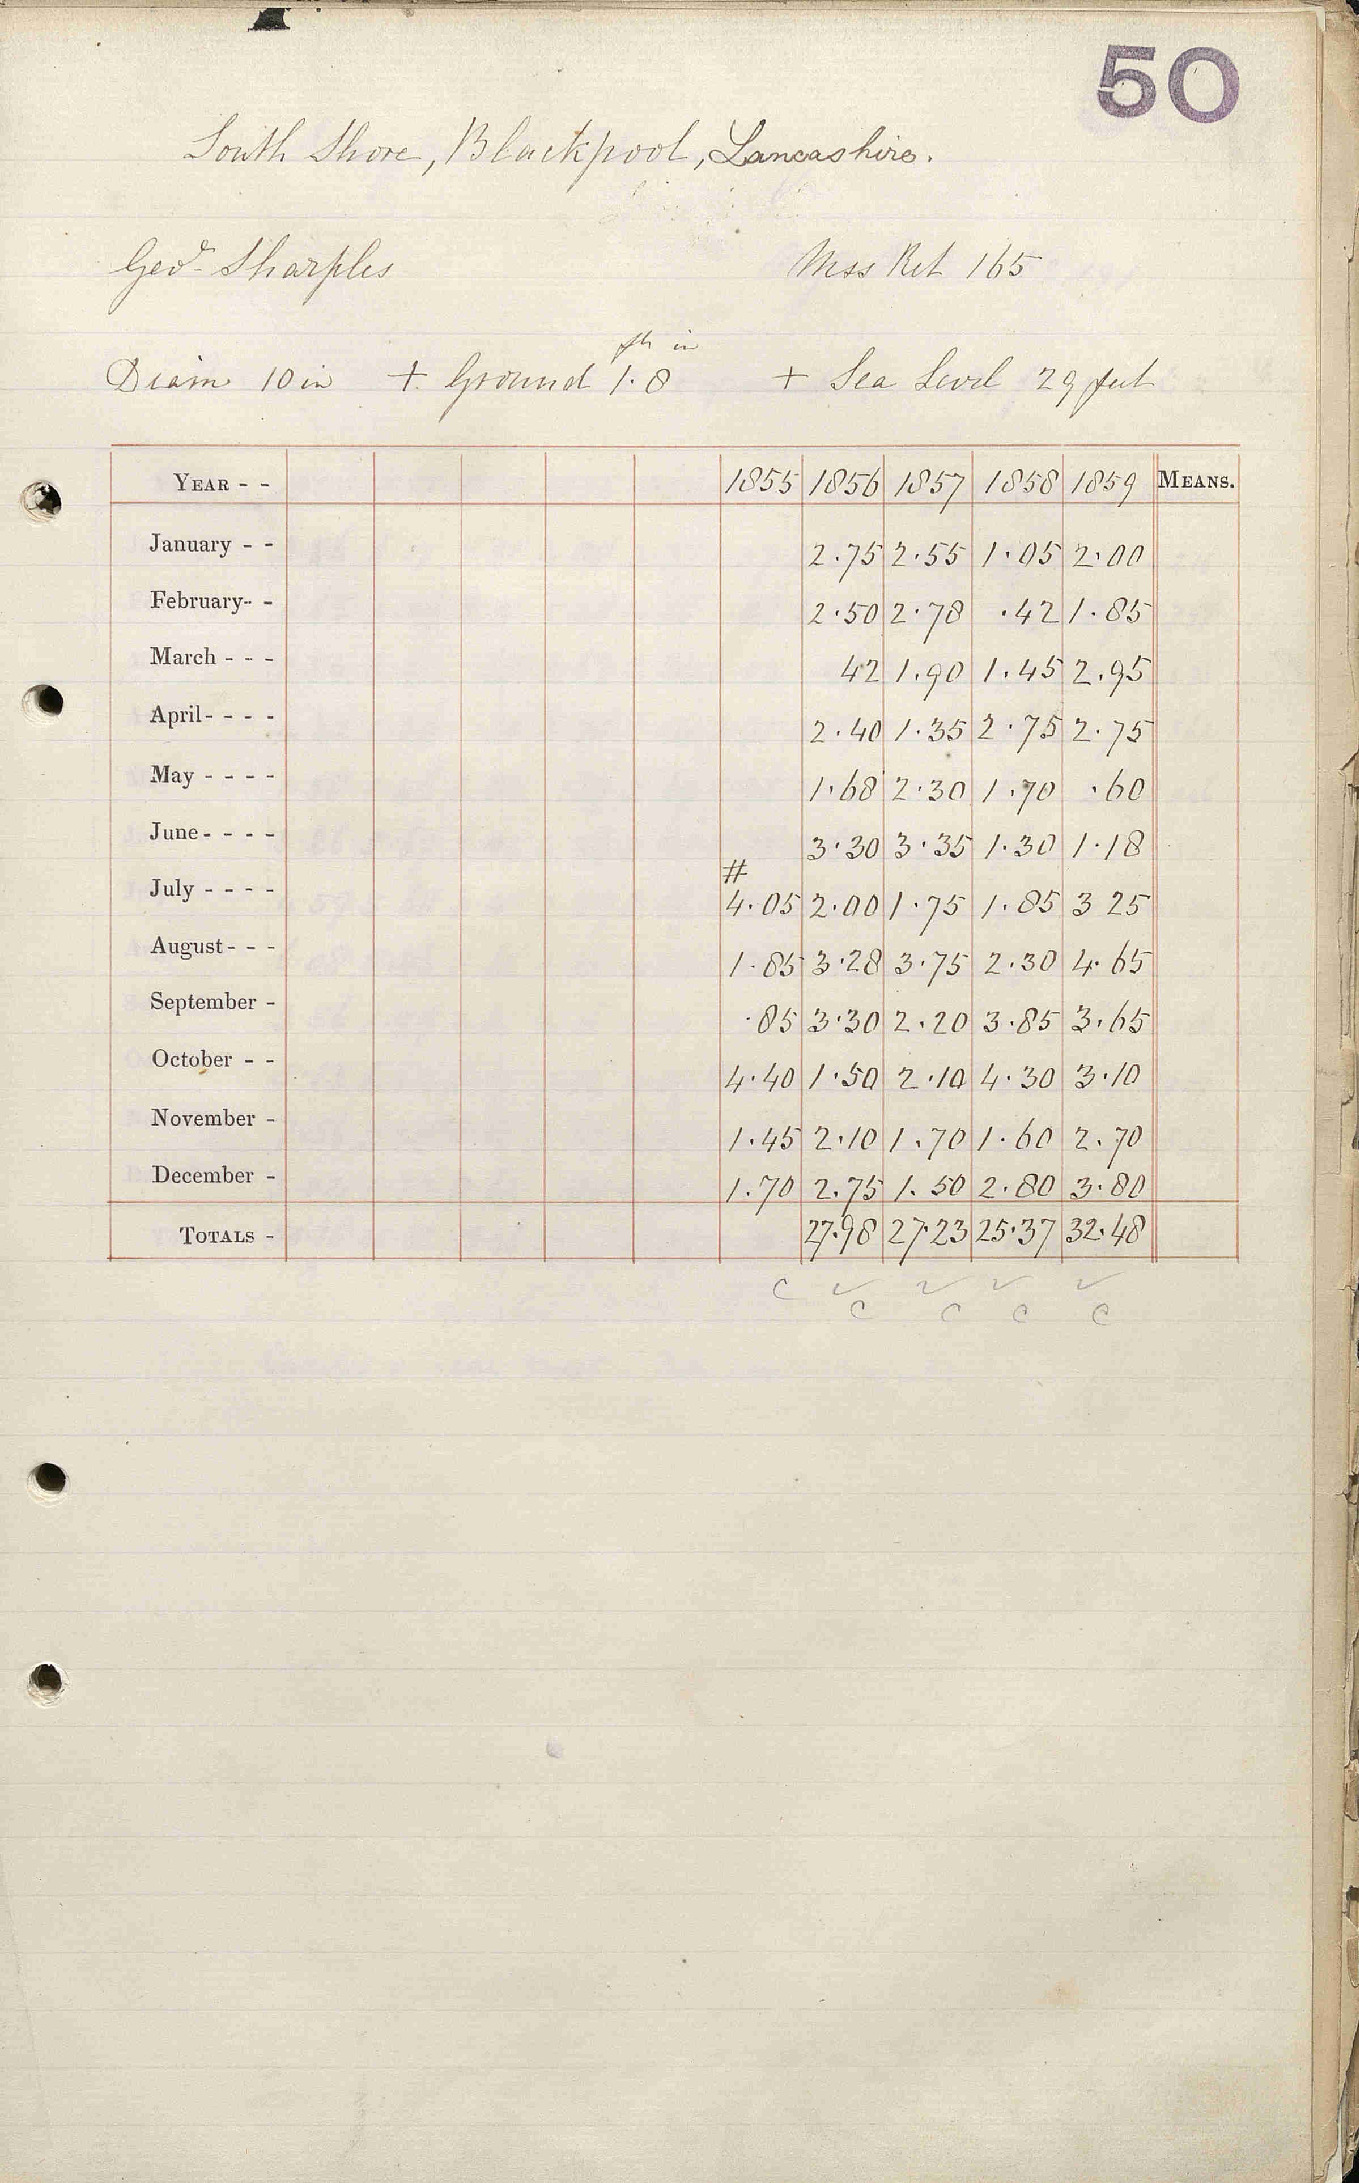 50
South Shore, Blackpool, Lancashire.
Sharples Mss Ret 165
ft in
Diam 10 in + Ground 1.8 + Sea Level 29 feet
YEAR - - 1855 1856 1857 1858 1859 MEANS.
January - - 2.75 2.55 1.05 2.00
February- - 2.50 2.78 .42 1.85
March - - - 42 1.90 1.45 2.95
April- - - - 2.40 1.35 2.75 2.75
May - - - - 1.68 2.30 1.70 .60
June- - - - 3.30 3.35 1.30 1.18
#
July - - - - 4.05 2.00 1.75 1.85 3 25
August- - - 1.85 3.28 3.75 2.30 4.65
September - .85 3.30 2.20 3.85 3.65
October - - 4.40 1.50 2.10 4.30 3.10
November - 1.45 2.10 1.70 1.60 2.70
December - 1.70 2.75 1.50 2.80 3.80
TOTALS - 27.98 27.23 25.37 32.48
c ✓ ✓ ✓ ✓
c c c c